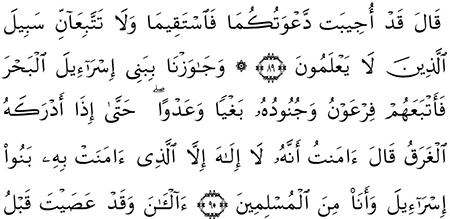 قَالَ قَدْ أُجِيبَت دَّعْوَتُكُمَا فَٱسْتَقِيمَا وَلَا تَتَّبِعَآنِّ سَبِيلَ
ٱلَّذِينَ لَا يَعْلَمُونَ ﴿٨٩﴾ ۞ وَجَٰوَزْنَا بِبَنِىٓ إِسْرَٰٓءِيلَ ٱلْبَحْرَ
فَأَتْبَعَهُمْ فِرْعَوْنُ وَجُنُودُهُۥ بَغْيًا وَعَدْوًا ۖ حَتَّىٰٓ إِذَآ أَدْرَكَهُ
ٱلْغَرَقُ قَالَ ءَامَنتُ أَنَّهُۥ لَآ إِلَٰهَ إِلَّا ٱلَّذِىٓ ءَامَنَتْ بِهِۦ بَنُوٓا۟
إِسْرَٰٓءِيلَ وَأَنَا۠ مِنَ ٱلْمُسْلِمِينَ ﴿٩٠﴾ ءَآلْـَٰٔنَ وَقَدْ عَصَيْتَ قَبْلُ